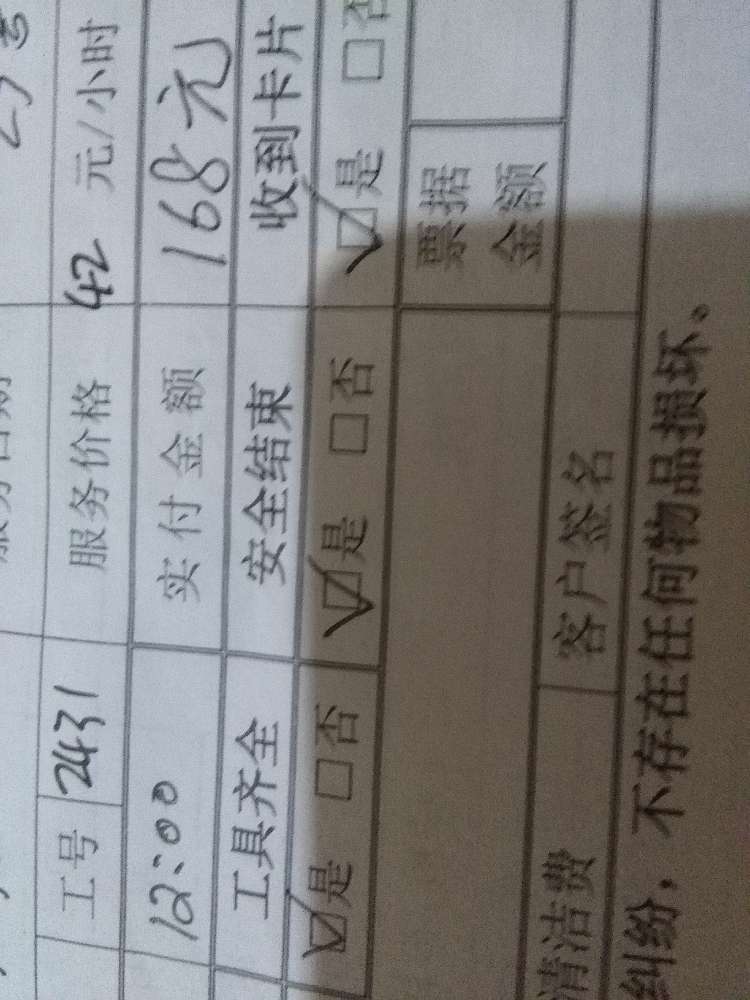 工号 2431 服务价格 42 元/小时
12:00 实付金额 168元
工具齐全 安全结束 收到卡片
☑是 □否 ☑是 □否 ☑是 □否
票据
金额
清洁费 客户签名
纠纷，不存在任何物品损坏。